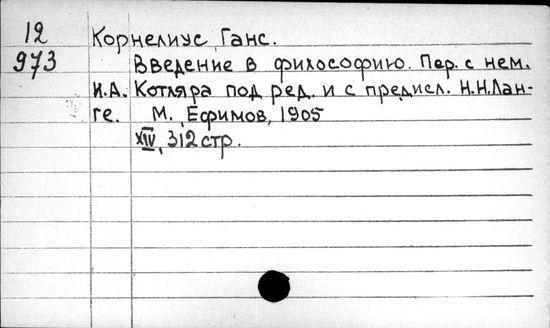 12 Корнелиус, Ганс.
973 Введение в философию. Пер. с нем.
И.А. Котляра под ред. и с предисл. Н.Н.Лан-
ге. М., Ефимов, 1905
XIV, 312 стр.